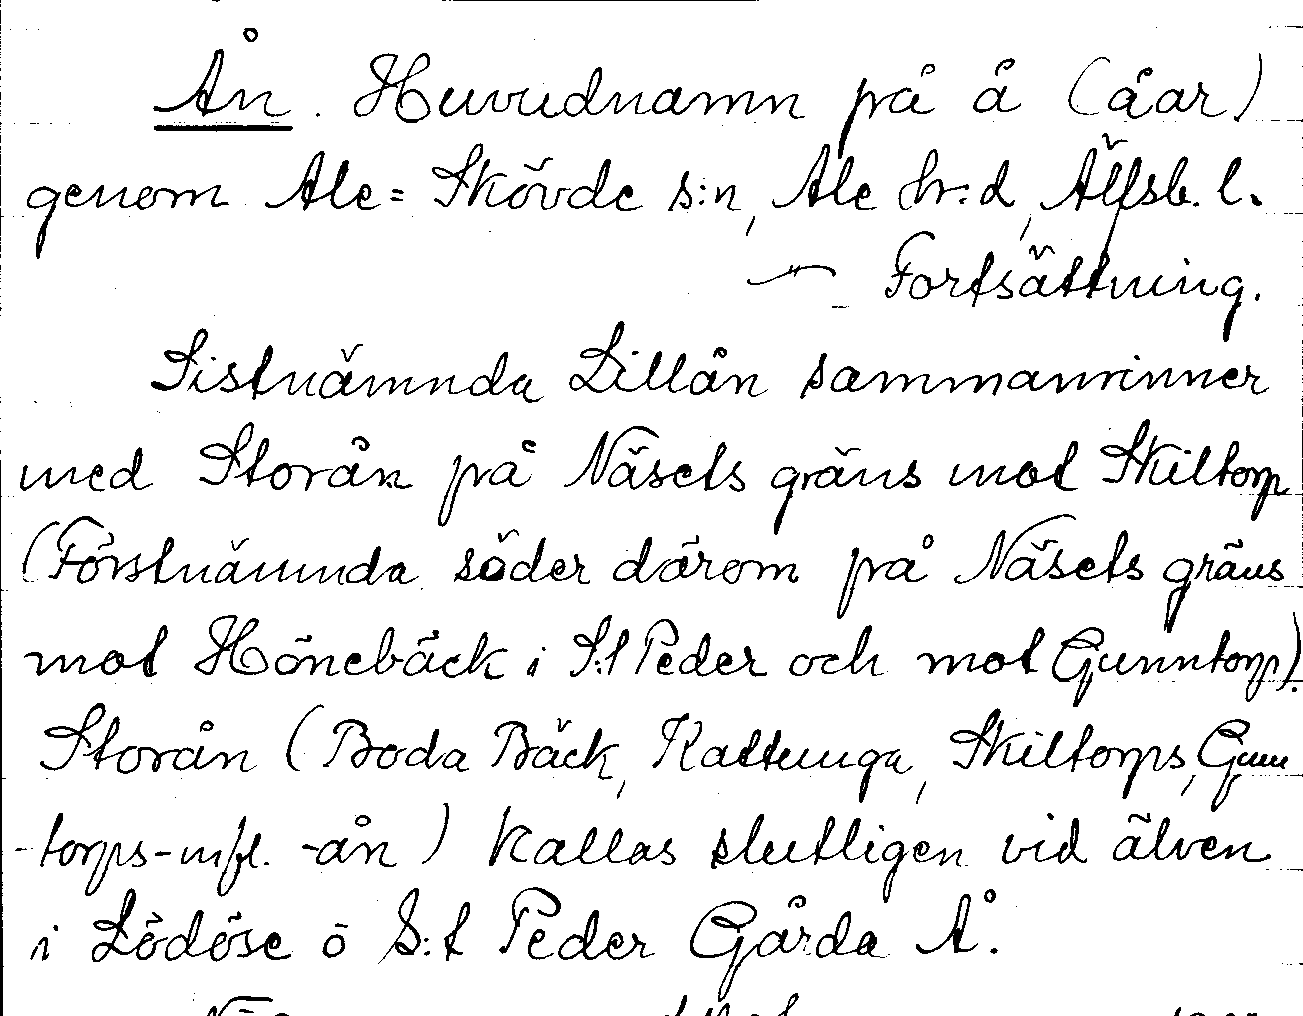 Ån. Huvudnamn på å (åar)
genom Ale-Skövde s:n, Ale hr:d, Älfsb. l.
— " — Fortsättning.
Sistnämnda Lillån sammanrinner
med Storån på Näsets gräns mot Skiltorp
(Förstnämnda söder därom på Näsets gräns
mot Hönebäck i S:t Peder och mot Gunntorp).
Storån (Boda Bäck, Kattunga, Skiltorps, Gunn
-torps-m.fl. -ån) kallas slutligen vid älven
i Lödöse o S:t Peder Gårda Å.